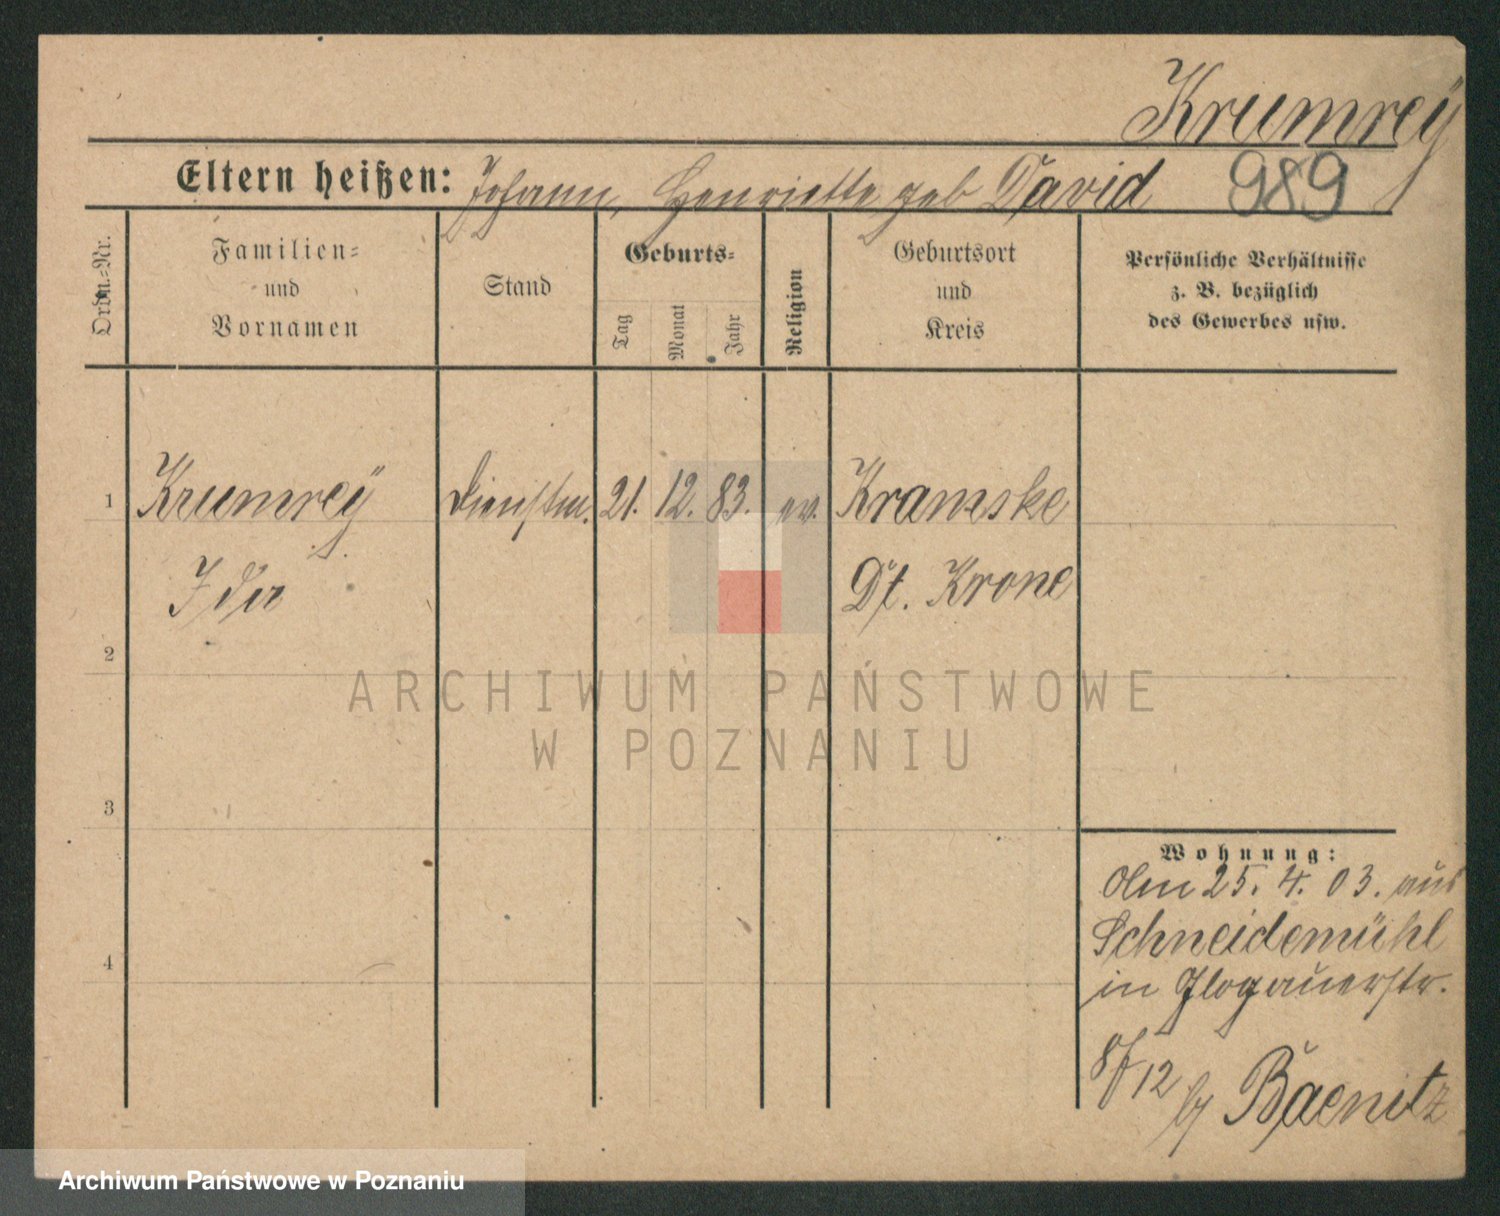 Krumreÿ
Eltern heißen: Johann, Henriette geb David 989
Ordn.-Nr.
Familien-
und
Vornamen
Stand
Geburts-
Tag
Monat
Jahr
Religion
Geburtsort
und
Kreis
Persönliche Verhältnisse
z. B. bezüglich
des Gewerbes usw.
1 Krumreÿ Dienstm. 21. 12. 83. ev. Kramske
Ida Dt. Krone
2
ARCHIWUM PAŃSTWOWE
W POZNANIU
3
Wohnung:
Am 25. 4. 03. aus
Schneidemühl
4
in Glogauerstr.
12
Baenitz
Archiwum Państwowe w Poznaniu